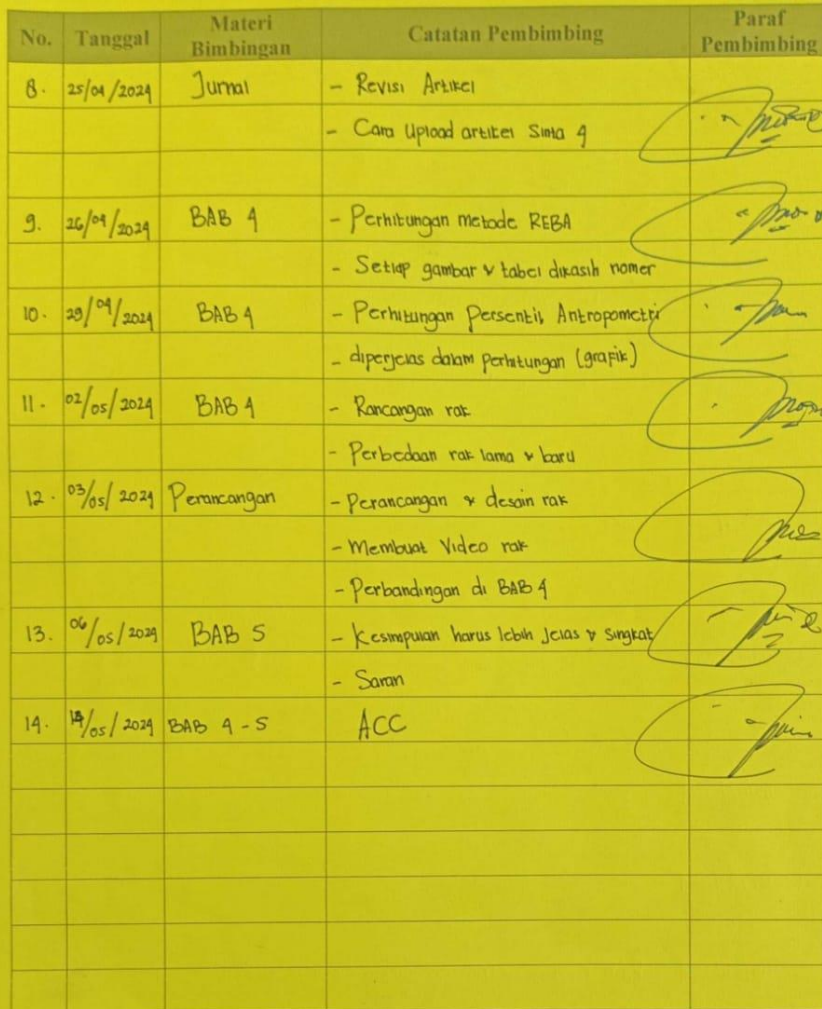 No. Tanggal Materi Bimbingan Catatan Pembimbing Paraf Pembimbing
8. 25/04/2024 Jurnal - Revisi Artikel
- Cara Upload artikel Sinta 4
9. 26/04/2024 BAB 4 - Perhitungan metode REBA
- Setiap gambar & tabel dikasih nomer
10. 29/04/2024 BAB 4 - Perhitungan Persentil Antropometri
- diperjelas dalam perhitungan (grafik)
11. 02/05/2024 BAB 4 - Rancangan rak
- Perbedaan rak lama & baru
12. 03/05/2024 Perancangan - Perancangan & desain rak
- Membuat Video rak
- Perbandingan di BAB 4
13. 06/05/2024 BAB 5 - Kesimpulan harus lebih Jelas & Singkat
- Saran
14. 14/05/2024 BAB 4-5 ACC